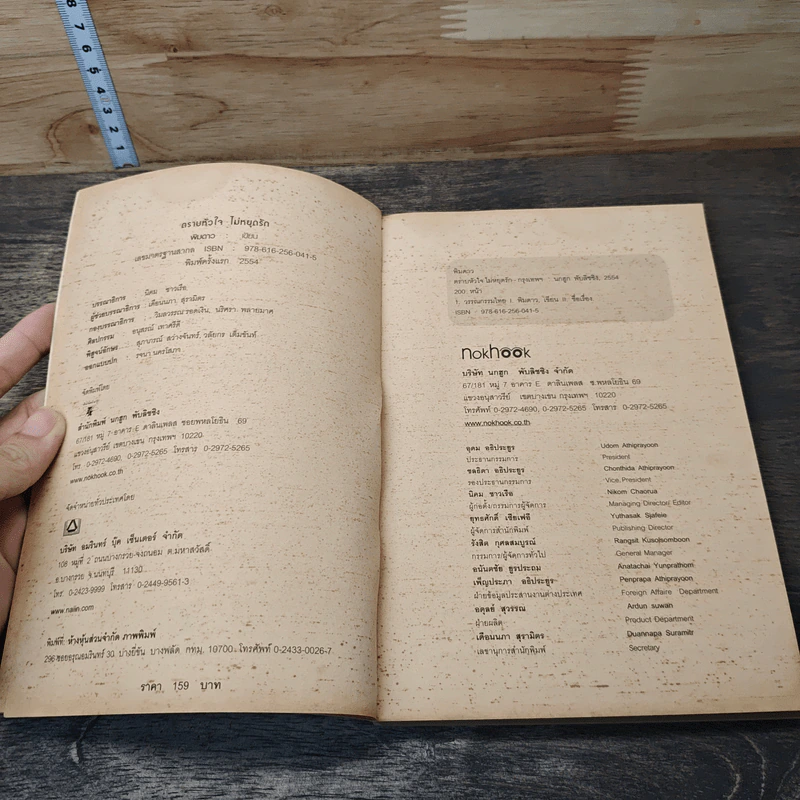 8
7
6
5
4
3
2
1
ตราบหัวใจ ไม่หยุดรัก
พิมดาว : เขียน
เลขมาตรฐานสากล ISBN : 978-616-256-041-5
พิมพ์ครั้งแรก 2554
บรรณาธิการ นิคม ชาวเรือ
ผู้ช่วยบรรณาธิการ เดือนนภา สุรามิตร
กองบรรณาธิการ วิมลวรรณ รอดเงิน, นริศรา พลายมาศ
ศิลปกรรม อนุสรณ์ เทาศรีดี
พิสูจน์อักษร สุภาภรณ์ สว่างจันทร์, วลัยกร เต็มขันท์
ออกแบบปก รจนา นครโสภา
จัดพิมพ์โดย
สำนักพิมพ์ นกฮูก พับลิชชิ่ง
67/181 หมู่ 7 อาคาร E ดาลินเพลส ซอยพหลโยธิน 69
แขวงอนุสาวรีย์ เขตบางเขน กรุงเทพฯ 10220
โทร 0-2972-4690, 0-2972-5265 โทรสาร 0-2972-5265
www.nokhook.co.th
จัดจำหน่ายทั่วประเทศโดย
บริษัท อมรินทร์ บุ๊ค เซ็นเตอร์ จำกัด
108 หมู่ที่ 2 ถนนบางกรวย-จงถนอม ต.มหาสวัสดิ์
อ.บางกรวย จ.นนทบุรี 11130
โทร. 0-2423-9999 โทรสาร 0-2449-9561-3
www.naiin.com
พิมพ์ที่ ห้างหุ้นส่วนจำกัด ภาพพิมพ์
296 ซอยอรุณอมรินทร์ 30 บางยี่ขัน บางพลัด กทม. 10700 โทรศัพท์ 0-2433-0026-7
ราคา 159 บาท
พิมดาว
ตราบหัวใจ ไม่หยุดรัก - กรุงเทพฯ : นกฮูก พับลิชชิ่ง, 2554
200 หน้า
1. วรรณกรรมไทย I. พิมดาว, เขียน II. ชื่อเรื่อง
ISBN : 978-616-256-041-5
nokhook
บริษัท นกฮูก พับลิชชิ่ง จำกัด
67/181 หมู่ 7 อาคาร E ดาลินเพลส ซ.พหลโยธิน 69
แขวงอนุสาวรีย์ เขตบางเขน กรุงเทพฯ 10220
โทรศัพท์ 0-2972-4690, 0-2972-5265 โทรสาร 0-2972-5265
www.nokhook.co.th
อุดม อธิประยูร Udom Athiprayoon
ประธานกรรมการ President
ชลธิดา อธิประยูร Chonthida Athiprayoon
รองประธานกรรมการ Vice President
นิคม ชาวเรือ Nikom Chaorua
ผู้ก่อตั้ง/กรรมการผู้จัดการ Managing Director/ Editor
ยุทธศักดิ์ เซียเฟอี Yuthasak Sjafeie
ผู้จัดการสำนักพิมพ์ Publishing Director
รังสิต กุศลสมบูรณ์ Rangsit Kusolsomboon
กรรมการ/ผู้จัดการทั่วไป General Manager
อนันตชัย ยูรประถม Anatachai Yunprathom
เพ็ญประภา อธิประยูร Penprapa Athiprayoon
ฝ่ายข้อมูลประสานงานต่างประเทศ Foreign Affaire Department
อดุลย์ สุวรรณ Ardun suwan
ฝ่ายผลิต Product Department
เดือนนภา สุรามิตร Duannapa Suramitr
เลขานุการสำนักพิมพ์ Secretary